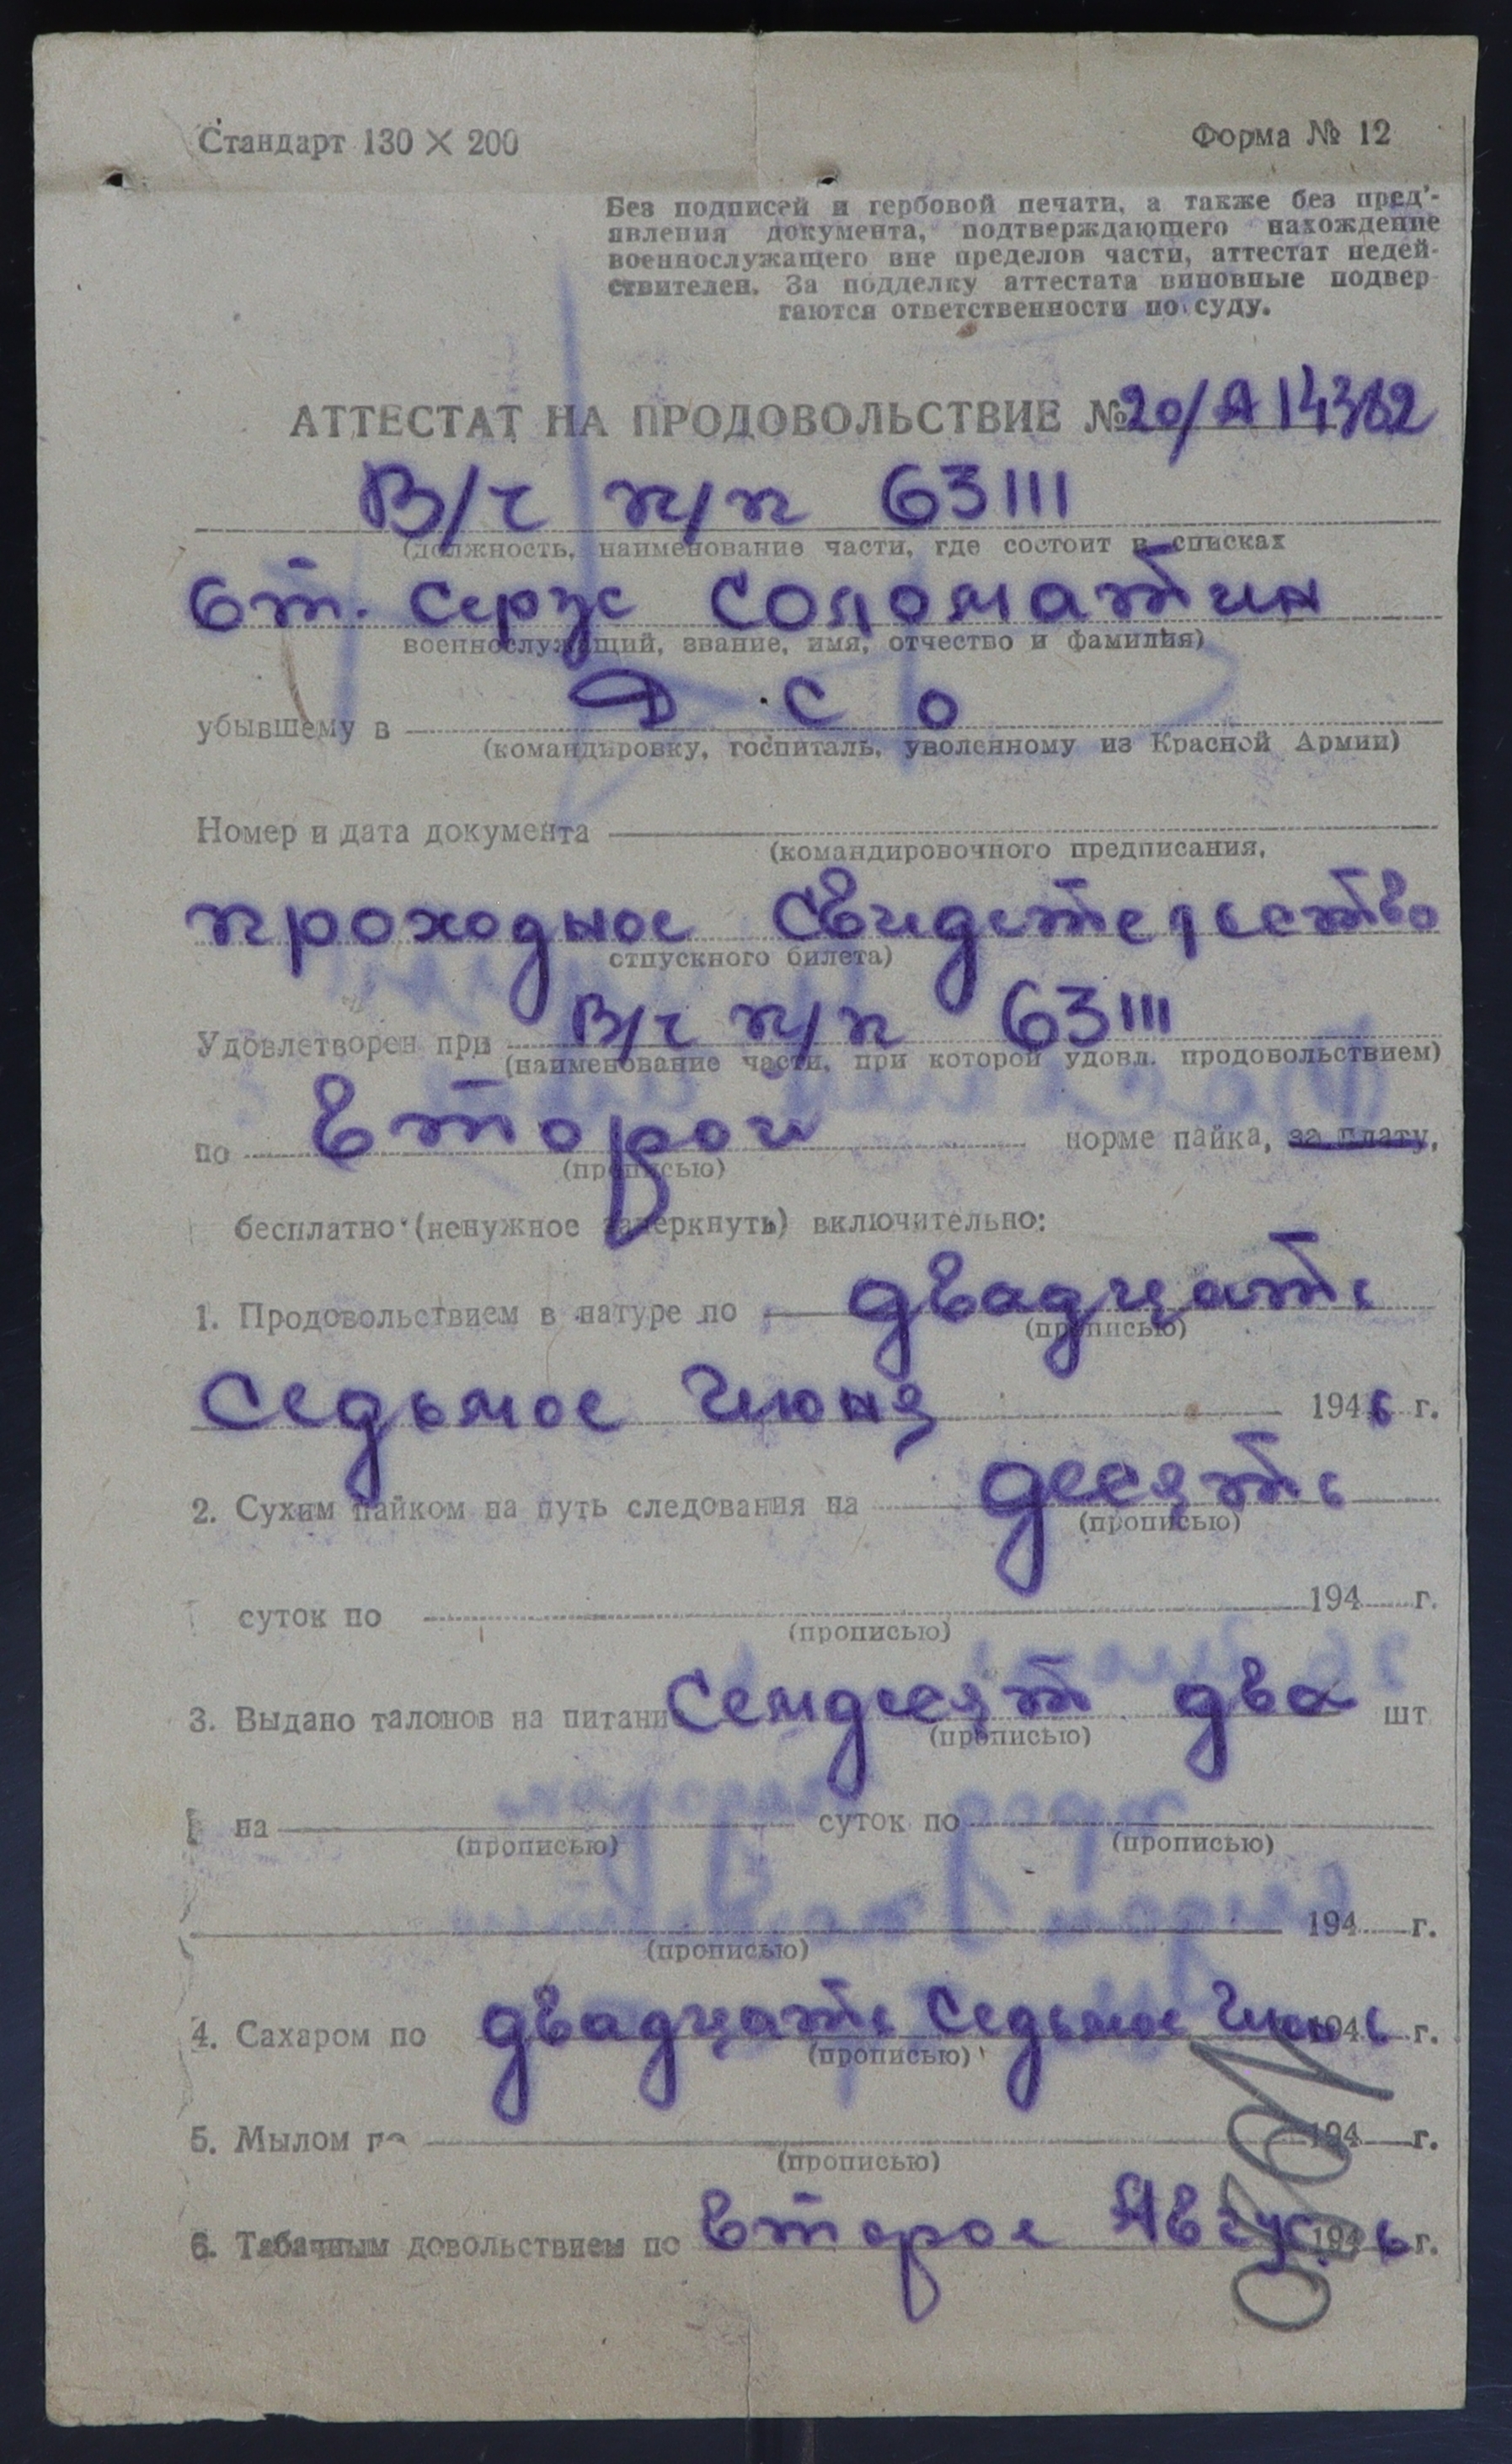 Стандарт 130 × 200
Форма № 12
Без подписей и гербовой печати, а также без пред'-
явления документа, подтверждающего нахождение
военнослужащего вне пределов части, аттестат недей-
ствителен. За подделку аттестата виновные подвер-
гаются ответственности по суду.
АТТЕСТАТ НА ПРОДОВОЛЬСТВИЕ № 20/А 14382
В/ч п/п 63111
(должность, наименование части, где состоит в списках
Ст. Серж Соломатин
военнослужащий, звание, имя, отчество и фамилия)
убывшему в Д. С О
(командировку, госпиталь, уволенному из Красной Армии)
Номер и дата документа
(командировочного предписания,
проходное свидетельство
отпускного билета)
Удовлетворен при В/ч п/п 63111
(наименование части, при которой удовл. продовольствием)
по второй норме пайка, за плату,
(прописью)
бесплатно (ненужное зачеркнуть) включительно:
1. Продовольствием в натуре по двадцать
(прописью)
седьмое Июня 1946 г.
2. Сухим пайком на путь следования на десять
(прописью)
суток по 194 г.
(прописью)
3. Выдано талонов на питани Семдесят два шт
(прописью)
на суток по
(прописью) (прописью)
194 г.
(прописью)
4. Сахаром по двадцать седьмое Июнь 1946 г.
(прописью)
5. Мылом по 194 г.
(прописью)
6. Табачным довольствием по второе Август 1946 г.